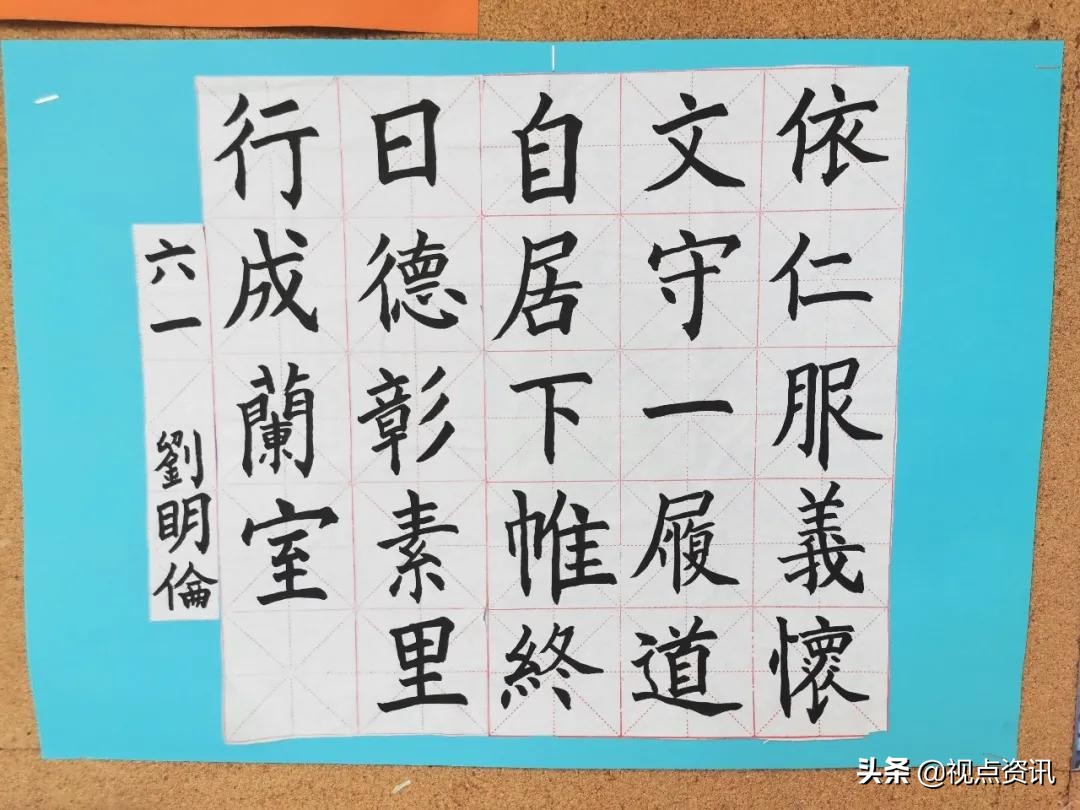 依仁服義懷
文守一履道
自居下帷終
日德彰素里
行成蘭室
六一 劉明倫
头条 @视点资讯